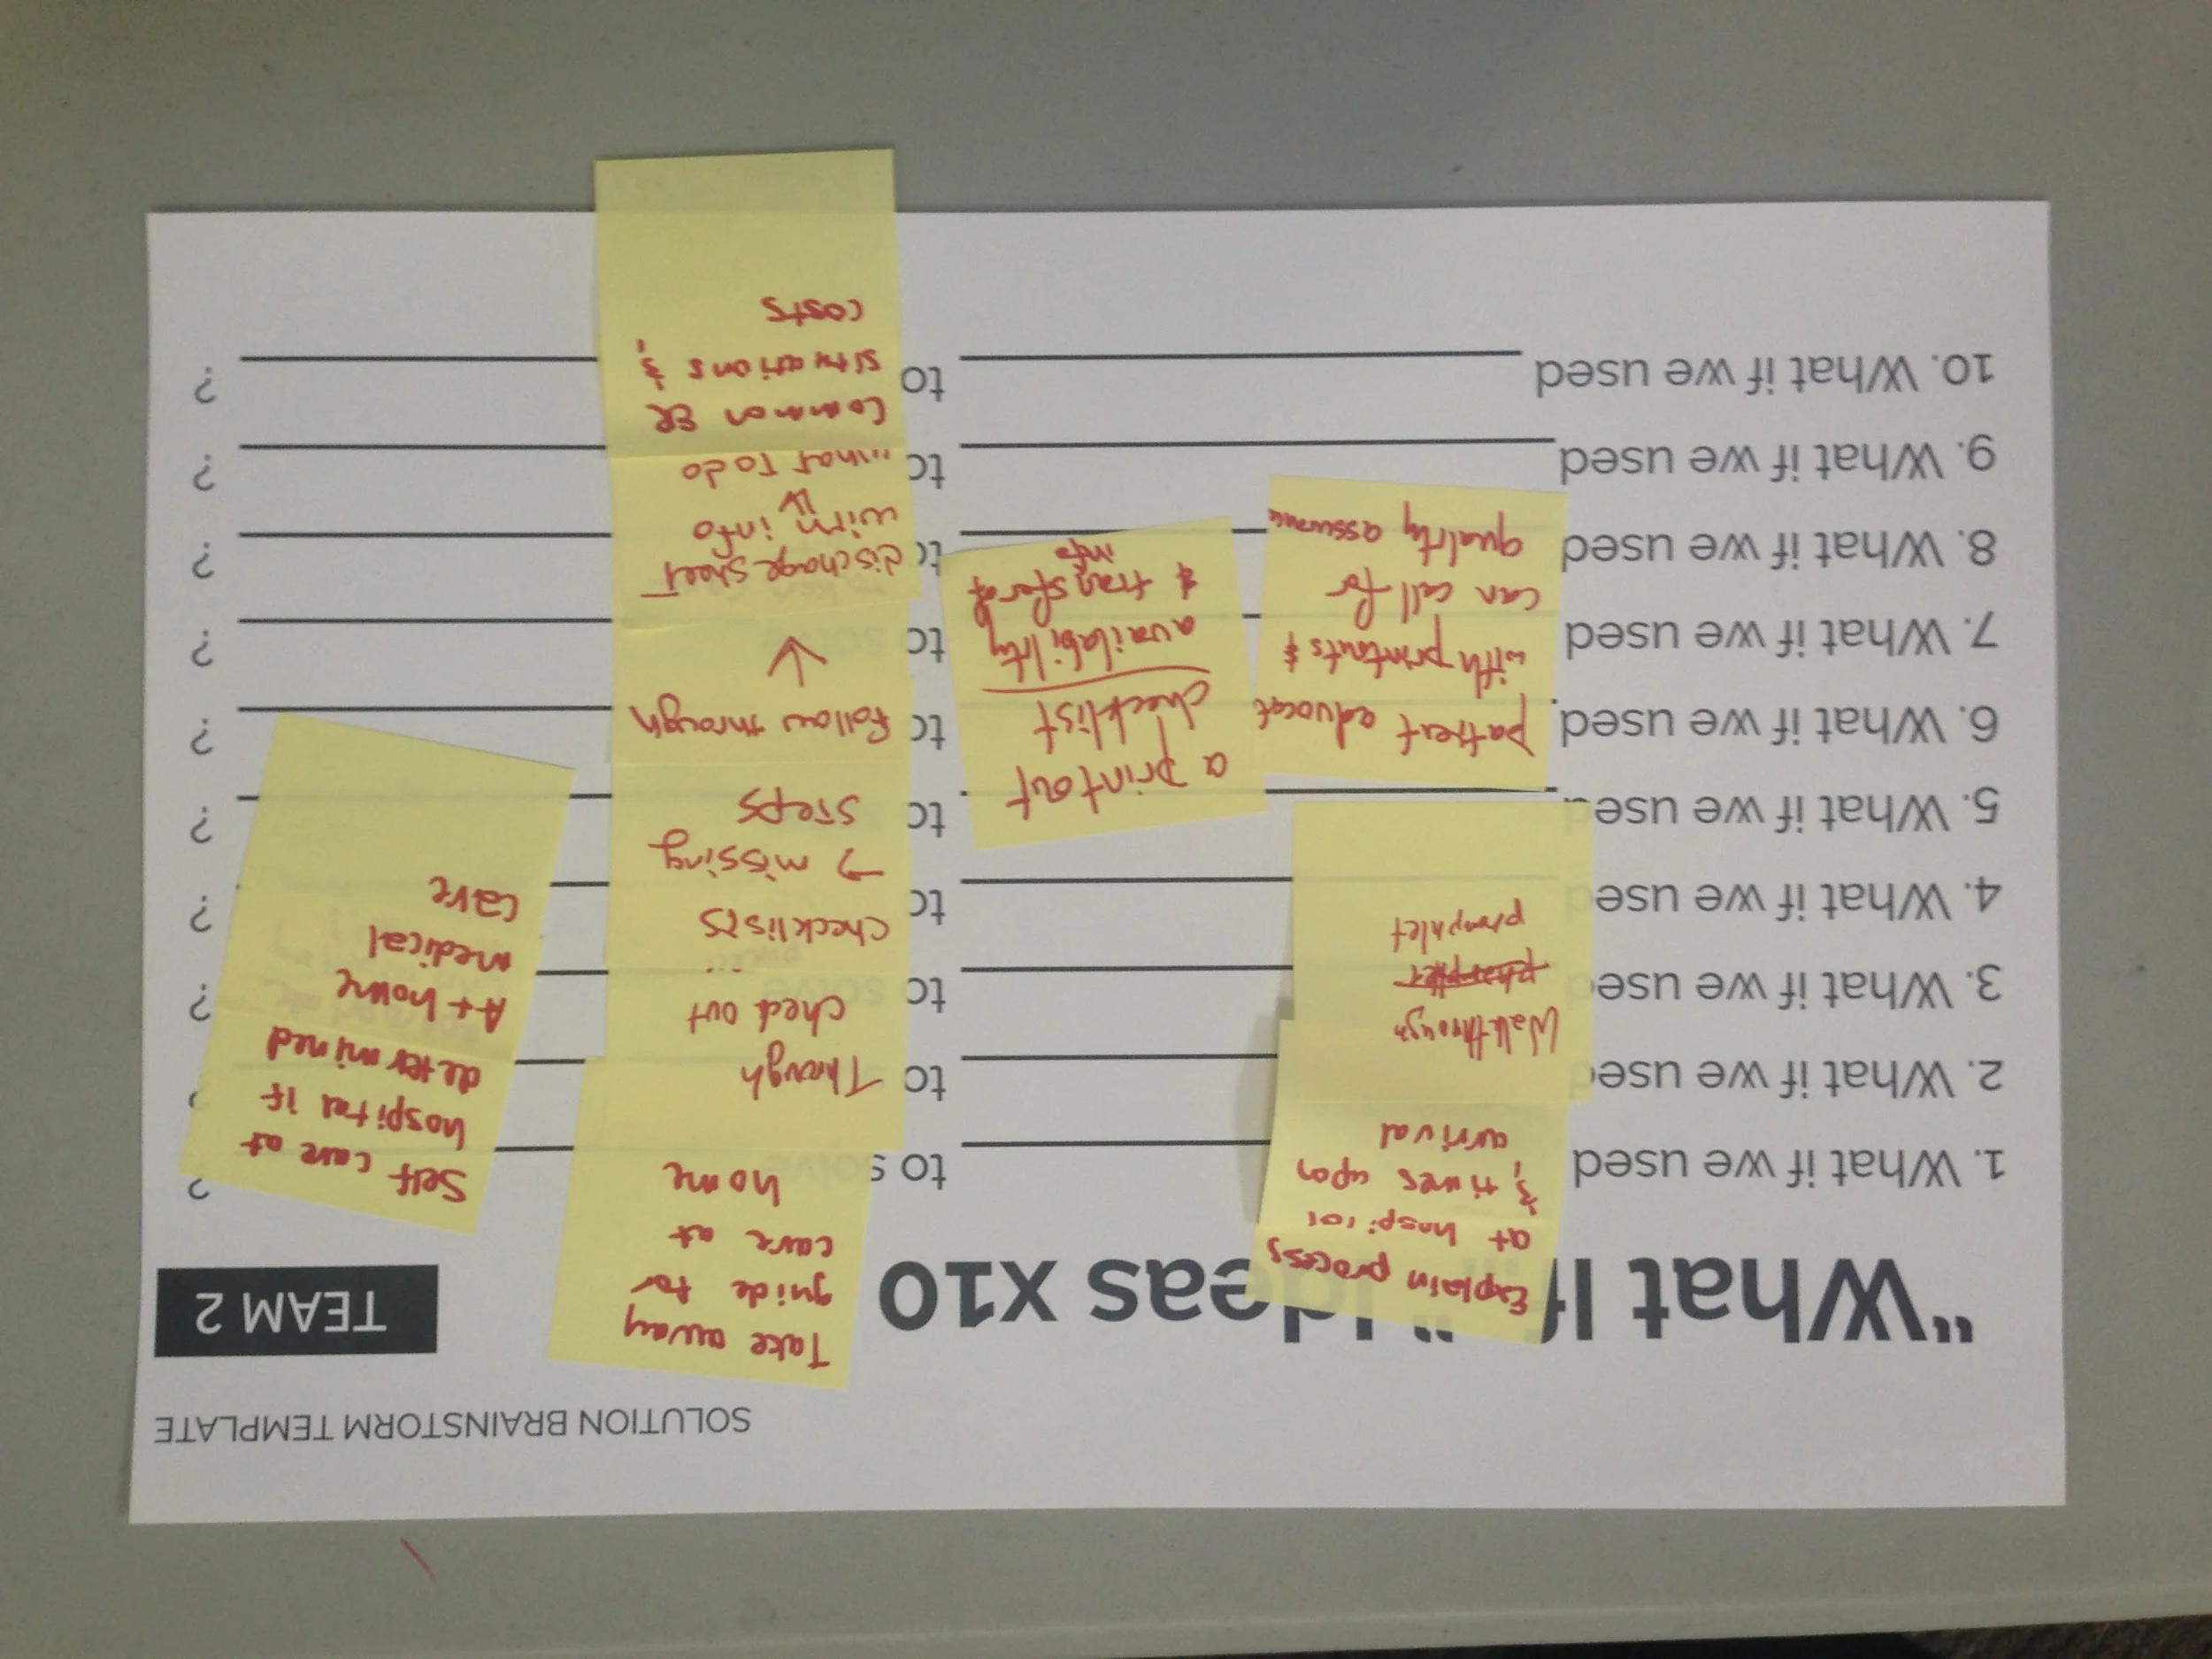 SOLUTION BRAINSTORM TEMPLATE
"What If..." Ideas x10
TEAM 2
1. What if we used
to s
?
2. What if we used
to
?
3. What if we used
to
?
4. What if we used
to
?
5. What if we used
to
?
6. What if we used
to
?
7. What if we used
to
?
8. What if we used
to
?
9. What if we used
to
?
10. What if we used
to
?
Explain process
at hospital
& times upon
arrival
Walkthrough
pamphlet
patient advocat
with printouts &
can call for
quality assurance
a printout
checklist
availability
& transfer of
info
Take away
guide for
care at
home
Through
check out
checklists
→ missing
steps
follow through
↓
discharge sheet
with info
↓
what to do
Common ER
situations &
costs
Self care at
hospital if
determined
At home
medical
care